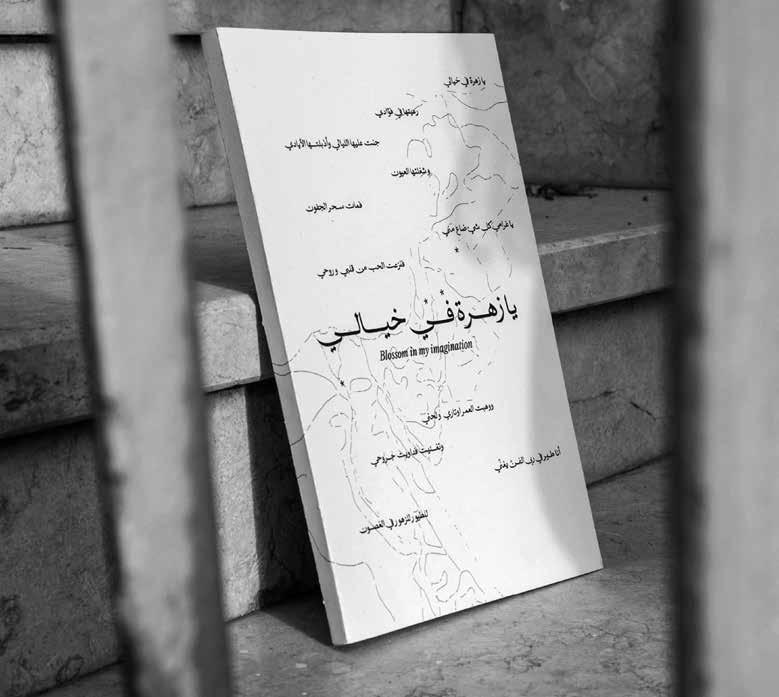 يا زهرة في خيالي
رعيتها في فؤادي
جنت عليها الليالي وأذبلتها الأيادي
وشغلتها العيون
فمات سحر الجفون
يا غرامي كل شي ضاع مني
فنزعت الحب من قلبي وروحي
يا زهرة في خيالي
Blossom in my imagination
ووهبت العمر اوتاري ولحني
وتغنيت فداويت جروحي
أنا طير في ربى الفن يغني
للطيور للزهور في الغصون